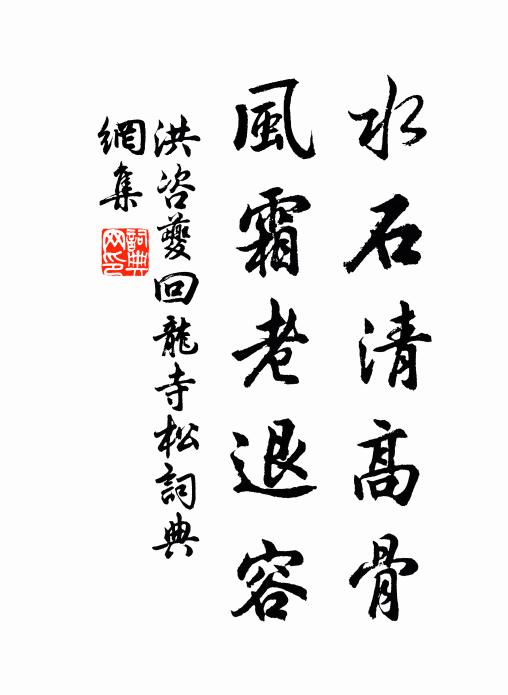 水石清高骨
風霜老退容
洪咨夔回龍寺松詞典
網集
詞典網印